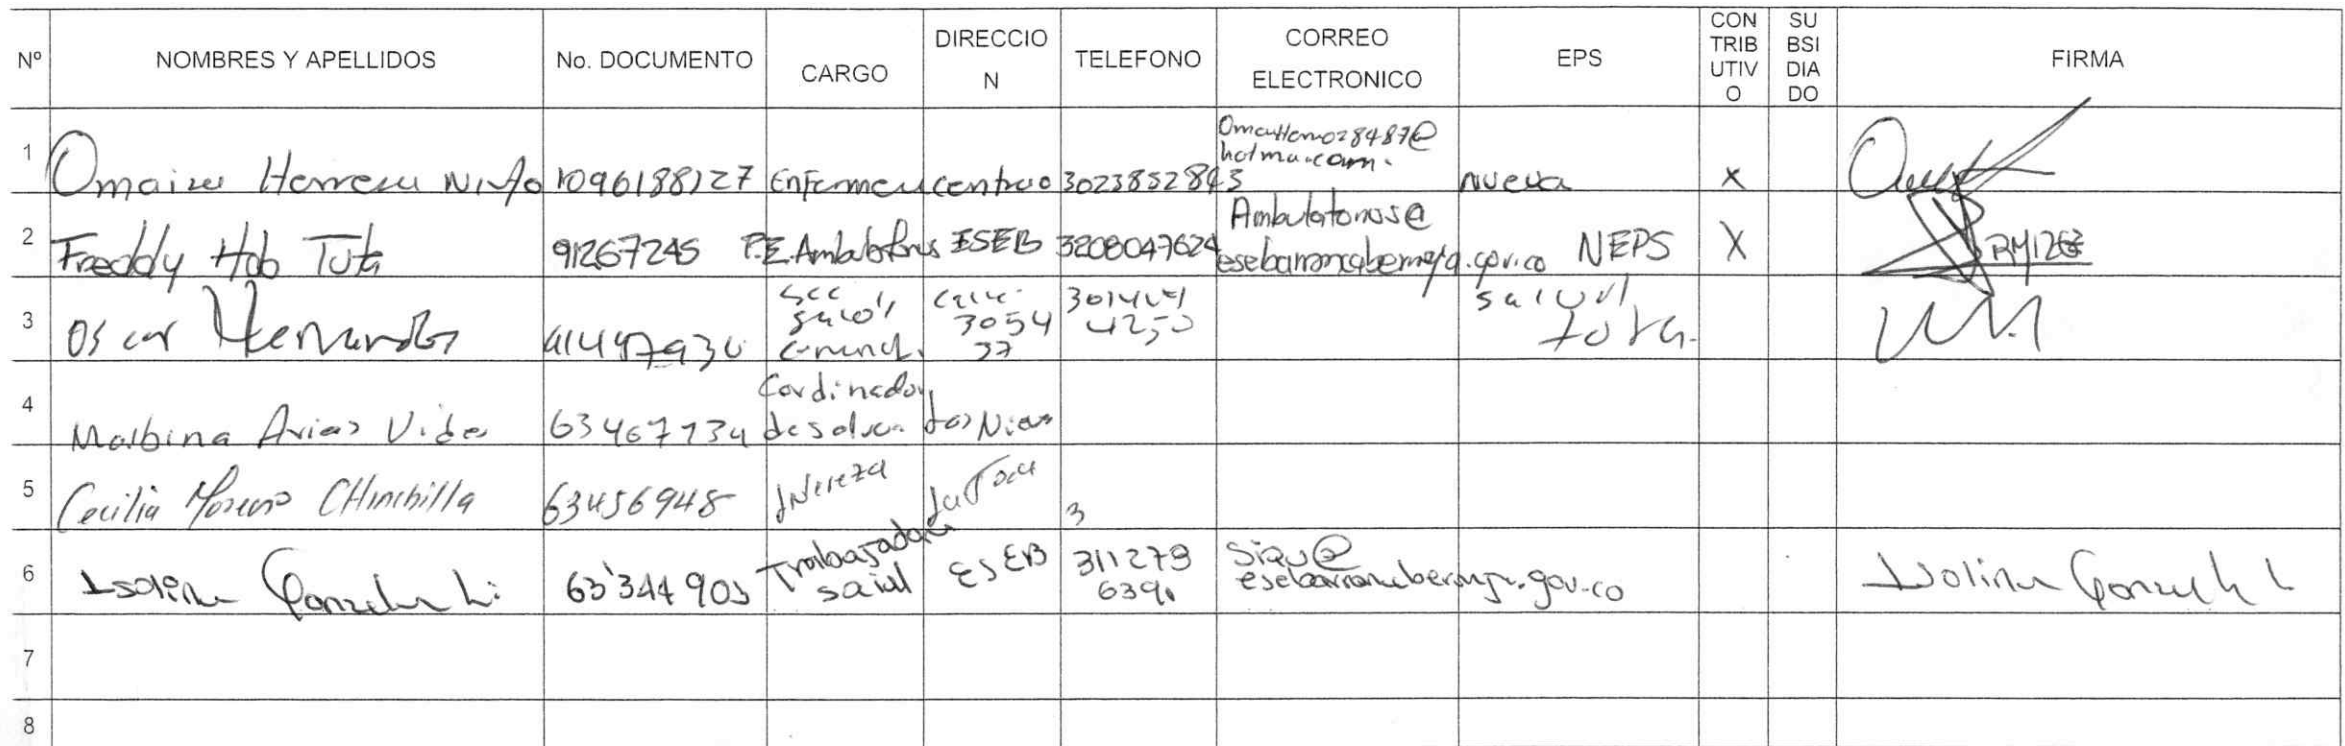 Nº NOMBRES Y APELLIDOS No. DOCUMENTO CARGO DIRECCIO N TELEFONO CORREO ELECTRONICO EPS CON TRIB UTIV O SU BSI DIA DO FIRMA
1 Omaira Herrera Niño 1096188127 Enfermera centro 3023852843 hotma.com. nueva x
2 Freddy Tuta 91267245 P.E. Ambulatorios ESEB 3208047624 Ambulatorios@ esebarrancabermeja.gov.co NEPS X
3 Oscar Hernandez salud 3054 37 4250 salud total.
4 Malbina Arias Vides 63467734 Cordinador de salud Las Nieves
5 Cecilia Moreno CHinchilla 63456948 3
6 Isolina Gonzalez L. 63'344903 Trabajadora saial ESEB 311279 6390 Siau@ esebarrancabermeja.gov.co Isolina Gonzalez L
7
8